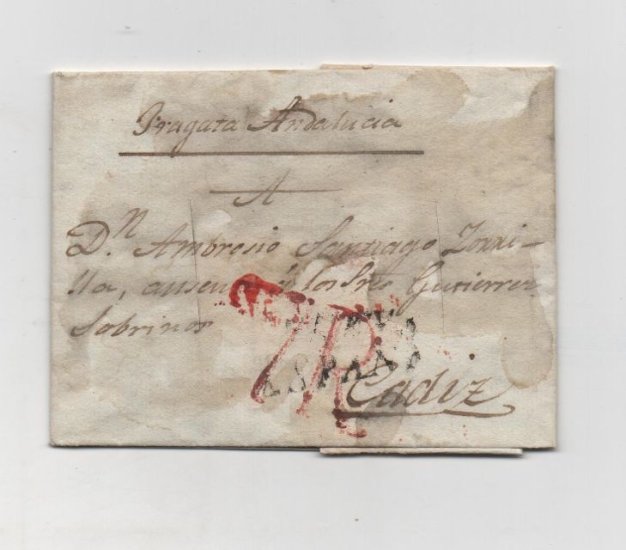 Fragata Andalucia
A
D.ⁿ Ambrosio Santiago Zorri-
lla, ausencia á los Sres Gutierrez
Sobrinos
7R
ESPAÑA
Cadiz